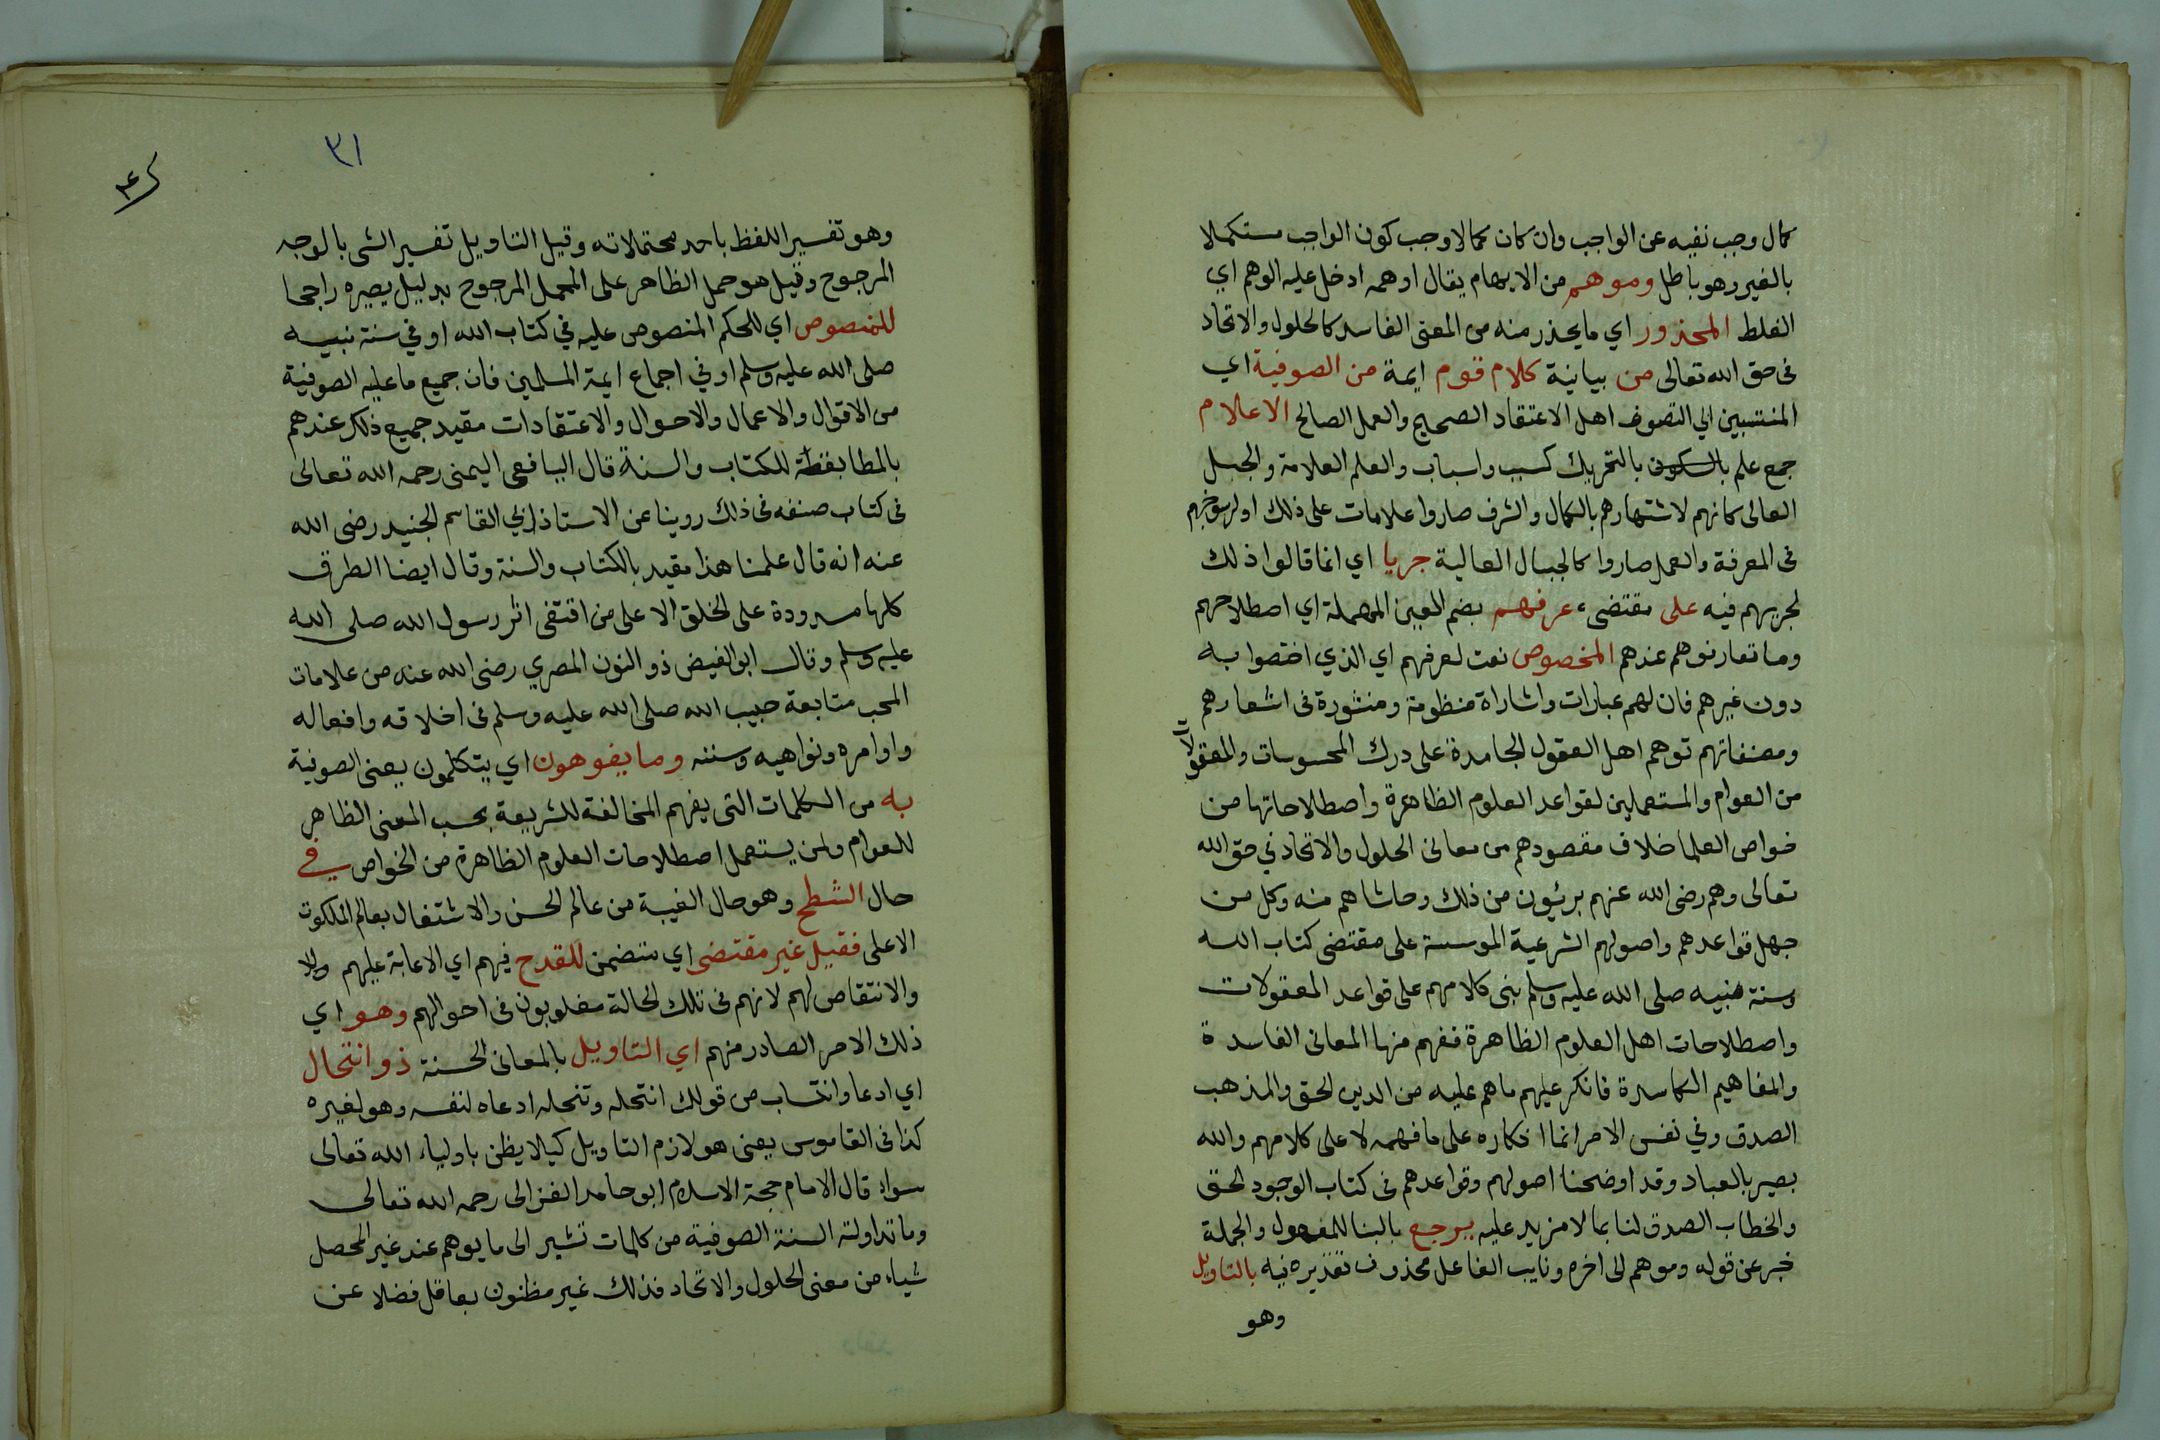 كمال وجب نفيه عن الواجب وان كان كمالا وجب كون الواجب مستكملا
بالغير وهو باطل وموهم من الايهام يقال اوهمه ادخل عليه الوهم اي
الغلط المحذور اي مايحذر منه من المعنى الفاسد كالحلول والاتحاد
فى حق الله تعالى من بيانية كلام قوم ايمة من الصوفية اي
المنتسبين الي التصوف اهل الاعتقاد الصحيح والعمل الصالح الاعلام
جمع علم بالسكون بالتحريك كسبب واسباب والعلم العلامة والجبل
العالى كانهم لاشتهارهم بالكمال والشرف صاروا علامات على ذلك او لرسوخهم
فى المعرفة والعمل صاروا كالجبال العالية جريا اي انما قالوا ذلك
لجريهم فيه على مقتضى عرفهم بضم العين المهملة اي اصطلاحهم
وما تعارفوهم عندهم المخصوص نعت لعرفهم اي الذي اختصوا به
دون غيرهم فان لهم عبارات واشاراة منظومة ومنثورة فى اشعارهم
ومصنفاتهم توهم اهل العقول الجامدة على درك المحسوسات والمعقولات
من العوام والمستعملين لقواعد العلوم الظاهرة واصطلاحاتها من
خواص العلما خلاف مقصودهم من معانى الحلول والاتحاد في حق الله
تعالى وهم رضى الله عنهم بريئون من ذلك وحاشاهم منه وكل من
جهل قواعدهم واصولهم الشرعية الموسسة على مقتضى كتاب الله
وسنة نبيه صلى الله عليه وسلم بنى كلامهم على قواعد المعقولات
واصطلاحات اهل العلوم الظاهرة ففهم منها المعانى الفاسدة
والمفاهيم الكاسدة فانكر عليهم ماهم عليه من الدين الحق والمذهب
الصدق وفي نفس الامر انما انكاره على ما فهمه لا على كلامهم والله
بصير بالعباد وقد اوضحنا اصولهم وقواعدهم فى كتاب الوجود الحق
والخطاب الصدق لنا بما لا مزيد عليه يرجع بالبنا للمفعول والجملة
خبر عن قوله وموهم الى اخره ونايب الفاعل محذوف تقديره فيه بالتاويل
وهو
٣١
وهو تفسير اللفظ باحد محتملاته وقيل التاويل تفسير الشى بالوجه
المرجوح وقيل هو حمل الظاهر على المحمل المرجوح بدليل يصيره راجحا
للمنصوص اي للحكم المنصوص عليه في كتاب الله او في سنة نبيه
صلى الله عليه وسلم او في اجماع ايمة المسلمين فان جميع ما عليه الصوفية
من الاقوال والاعمال والاحوال والاعتقادات مقيد جميع ذلك عندهم
بالمطابقة للكتاب والسنة قال اليافعى اليمنى رحمه الله تعالى
فى كتاب صنفه فى ذلك روينا عن الاستاذ ابي القاسم الجنيد رضى الله
عنه انه قال علمنا هذا مقيد بالكتاب والسنة وقال ايضا الطرق
كلها مسدودة على الخلق الا على من اقتفى اثر رسول الله صلى الله
عليه وسلم وقال ابو الفيض ذو النون المصري رضى الله عنه من علامات
المحب متابعة حبيب الله صلى الله عليه وسلم فى اخلاقه وافعاله
واوامره ونواهيه وسننه وما يفوهون اي يتكلمون يعنى الصوفية
به من الكلمات التى يفهم المخالفة للشريعة بحسب المعنى الظاهر
للعوام ولمن يستعمل اصطلاحات العلوم الظاهرة من الخواص في
حال الشطح وهو حال الغيبة من عالم الحس والاشتغال بعالم الملكوت
الاعلى فقيل غير مقتضى اي متضمن للقدح فيهم اي الاعابة عليهم
والانتقاص لهم لانهم فى تلك الحالة مغلوبون فى احوالهم وهو اي
ذلك الامر الصادر منهم اي التاويل بالمعانى الحسنة ذو انتحال
اي ادعا وانتساب من قولك انتحله وتنحله ادعاه لنفسه وهو لغيره
كذا فى القاموس يعنى هو لازم التاويل كيلا يظن باولياء الله تعالى
سواء قال الامام حجة الاسلام ابو حامد الغزالى رحمه الله تعالى
وما تداولته السنة الصوفية من كلمات تشير الى ما يوهم عند غير المحصل
شياء من معنى الحلول والاتحاد فذلك غير مظنون بعاقل فضلا عن